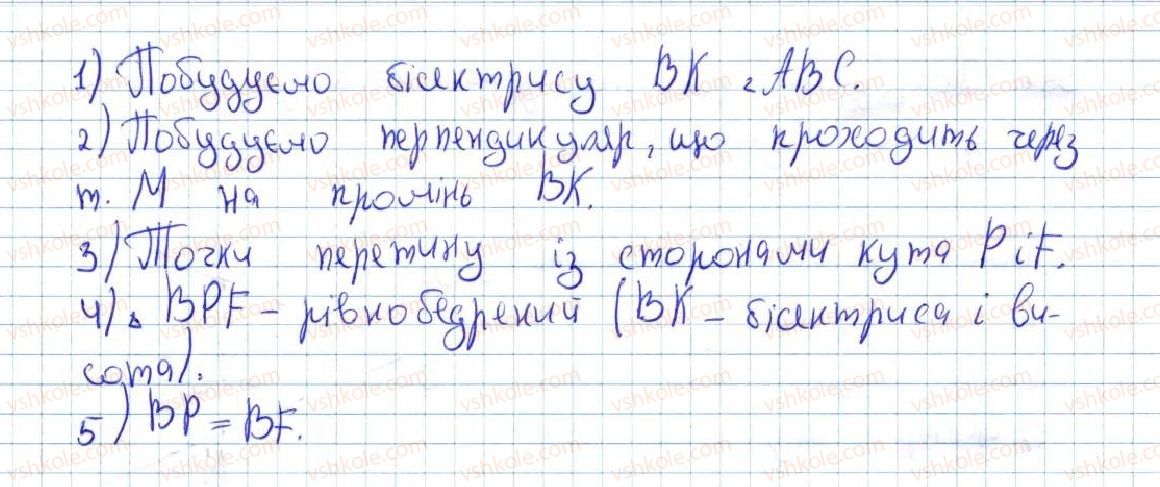 1) Побудуємо бісектрису BK ∠ABC.
2) Побудуємо перпендикуляр, що проходить через
т. M на промінь BK.
3) Точки перетину із сторонами кута P i F.
4) △ BPF – рівнобедрений (BK – бісектриса і ви-
сота).
5) BP = BF.